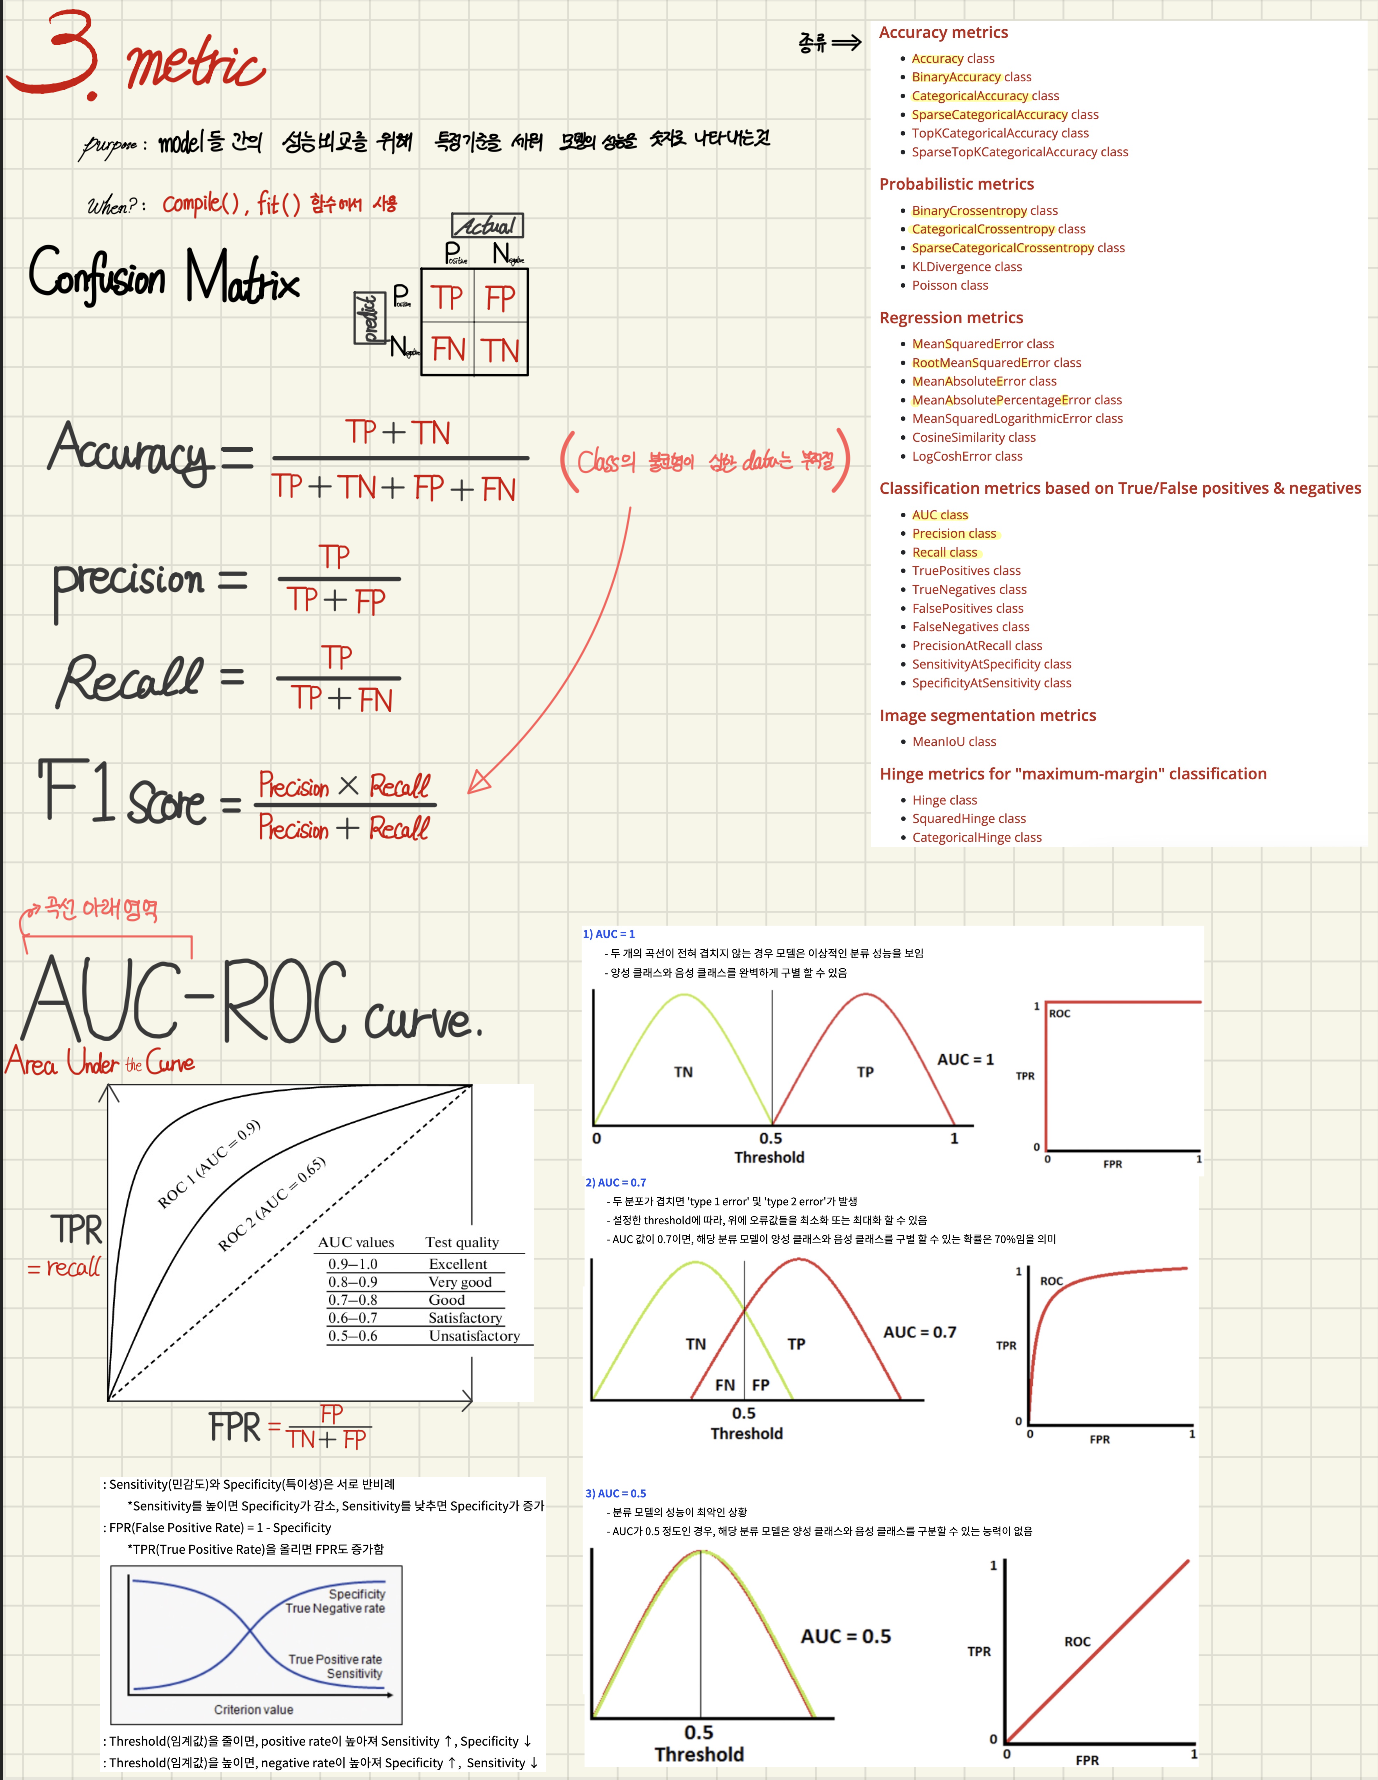 3. metric
purpose : model들 간의 성능비교를 위해 특정기준을 세워 모델의 성능을 숫자로 나타내는것
When? : Compile(), fit() 함수에서 사용
종류 ⇒
Accuracy metrics
• Accuracy class
• BinaryAccuracy class
• CategoricalAccuracy class
• SparseCategoricalAccuracy class
• TopKCategoricalAccuracy class
• SparseTopKCategoricalAccuracy class
Probabilistic metrics
• BinaryCrossentropy class
• CategoricalCrossentropy class
• SparseCategoricalCrossentropy class
• KLDivergence class
• Poisson class
Regression metrics
• MeanSquaredError class
• RootMeanSquaredError class
• MeanAbsoluteError class
• MeanAbsolutePercentageError class
• MeanSquaredLogarithmicError class
• CosineSimilarity class
• LogCoshError class
Classification metrics based on True/False positives & negatives
• AUC class
• Precision class
• Recall class
• TruePositives class
• TrueNegatives class
• FalsePositives class
• FalseNegatives class
• PrecisionAtRecall class
• SensitivityAtSpecificity class
• SpecificityAtSensitivity class
Image segmentation metrics
• MeanIoU class
Hinge metrics for "maximum-margin" classification
• Hinge class
• SquaredHinge class
• CategoricalHinge class
Confusion Matrix
Actual
Positive Negative
predict
Positive TP FP
Negative FN TN
Accuracy =
TP + TN
TP + TN + FP + FN
(Class의 불균형이 심한 data는 부적절)
precision =
TP
TP + FP
Recall =
TP
TP + FN
F1 score =
Precision × Recall
Precision + Recall
곡선 아래 영역
AUC-ROC curve.
Area Under the Curve
TPR
= recall
ROC 1 (AUC = 0.9)
ROC 2 (AUC = 0.65)
AUC values Test quality
0.9–1.0 Excellent
0.8–0.9 Very good
0.7–0.8 Good
0.6–0.7 Satisfactory
0.5–0.6 Unsatisfactory
FPR =
FP
TN + FP
: Sensitivity(민감도)와 Specificity(특이성)은 서로 반비례
*Sensitivity를 높이면 Specificity가 감소, Sensitivity를 낮추면 Specificity가 증가
: FPR(False Positive Rate) = 1 - Specificity
*TPR(True Positive Rate)을 올리면 FPR도 증가함
Specificity
True Negative rate
True Positive rate
Sensitivity
Criterion value
: Threshold(임계값)을 줄이면, positive rate이 높아져 Sensitivity ↑, Specificity ↓
: Threshold(임계값)을 높이면, negative rate이 높아져 Specificity ↑, Sensitivity ↓
1) AUC = 1
- 두 개의 곡선이 전혀 겹치지 않는 경우 모델은 이상적인 분류 성능을 보임
- 양성 클래스와 음성 클래스를 완벽하게 구별 할 수 있음
TN TP
AUC = 1
0 0.5 1
Threshold
1
ROC
TPR
0
0 1
FPR
2) AUC = 0.7
- 두 분포가 겹치면 'type 1 error' 및 'type 2 error'가 발생
- 설정한 threshold에 따라, 위에 오류값들을 최소화 또는 최대화 할 수 있음
- AUC 값이 0.7이면, 해당 분류 모델이 양성 클래스와 음성 클래스를 구별 할 수 있는 확률은 70%임을 의미
TN TP
AUC = 0.7
FN FP
0.5
Threshold
1
ROC
TPR
0
0 1
FPR
3) AUC = 0.5
- 분류 모델의 성능이 최악인 상황
- AUC가 0.5 정도인 경우, 해당 분류 모델은 양성 클래스와 음성 클래스를 구분할 수 있는 능력이 없음
AUC = 0.5
0.5
Threshold
1
ROC
TPR
0
0 1
FPR